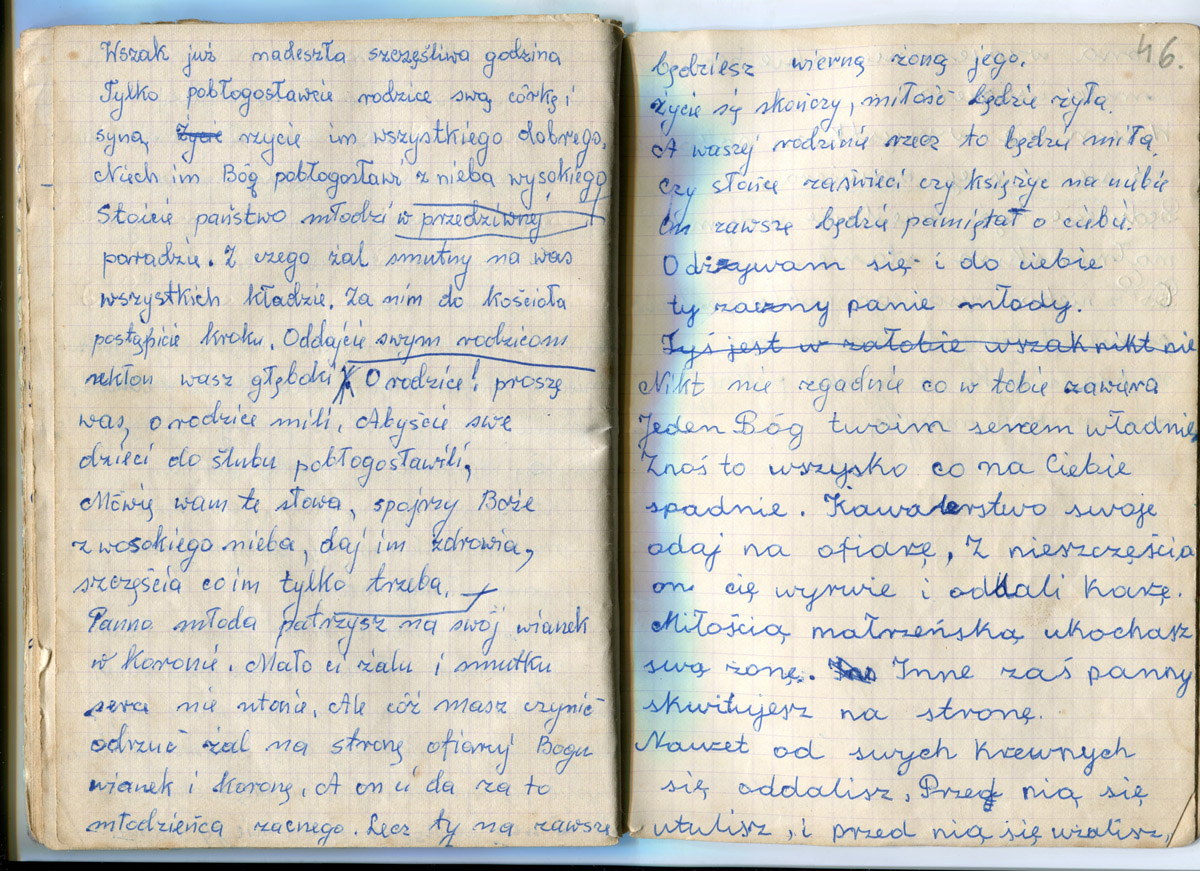 Wszak już nadeszła szczęśliwa godzina
Tylko pobłogosławcie rodzice swą córkę i
syną, Życie rzycie im wszystkiego dobrego.
Niech im Bóg pobłogosławi z nieba wysokiego
Stoicie państwo młodzi w przedziwnej
paradzie. Z czego żal smutny na was
wszystkich kładzie. Za nim do kościoła
postąpicie kroku. Oddajcie swym rodzicom
ukłon wasz głęboki O rodzice! proszę
was, o rodzice mili. Abyście swe
dzieci do ślubu pobłogosławili,
Mówię wam te słowa, spojrzy Boże
z wosokiego nieba, daj im zdrowia,
szczęścia co im tylko trzeba.
Panno młoda patrzysz na swój wianek
w koronie. Mało ci żalu i smutku
serce nie utonie. Ale cóż masz czynić
odrzuć żal na stronę ofiaruj Bogu
wianek i koronę. A on ci da za to
młodzieńca zacnego. Lecz ty na zawsze
46.
będziesz wierną żoną jego.
Życie się skończy, miłość będzie żyła
A waszej rodzinie rzecz to będzie miła.
Czy słońce zaświeci czy księżyc na niebie
On zawsze będzie pamiętał o ciebie.
Odzzywam się i do ciebie
ty zaczny panie młody.
Tyś jest w załobie wszak nikt nie
Nikt nie zgadnie co w tobie zawiera
Jeden Bóg twoim sercem władnie,
Znoś to wszysko co na Ciebie
spadnie. Kawalerstwo swoje
odaj na ofiarę, Z nieszczęścia
on cię wyrwie i oddali karę.
Miłością małrzeńską ukochasz
swą żonę. Inne zaś panny
skwitujesz na stronę.
Nawet od swych krewnych
się oddalisz, Przed nią się
utulisz, i przed nią się użalisz,